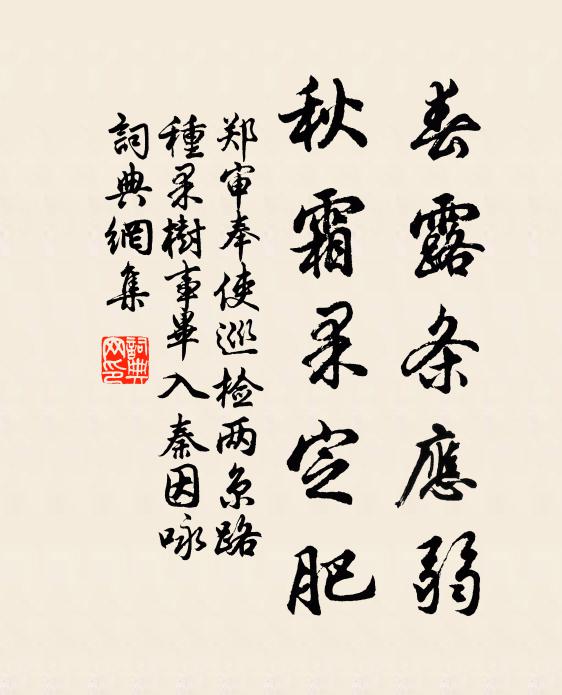 春露条應弱
秋霜果定肥
郑审奉使巡检两京路
種果樹事畢入秦因咏
詞典網集
詞典網印